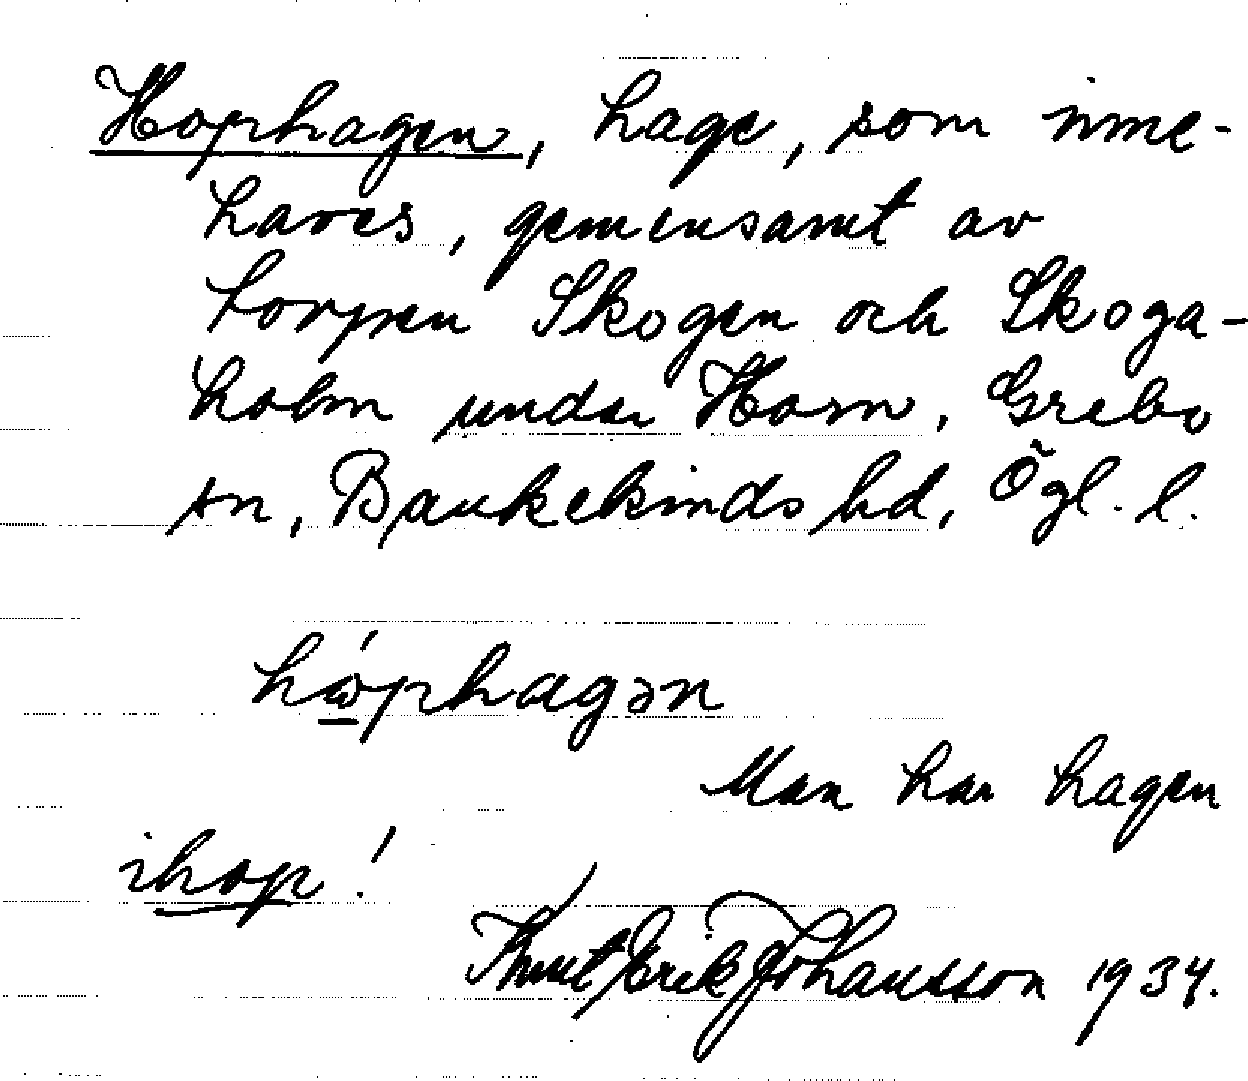 Hophagen, hage, som inne-
haves, gemensamt av
torpen Skogen och Skoga-
holm under Horn, Grebo
sn, Bankekinds hd, Ögl. l.
hώphagən
Man har hagen
ihop!
Knut Erik Johansson 1934.